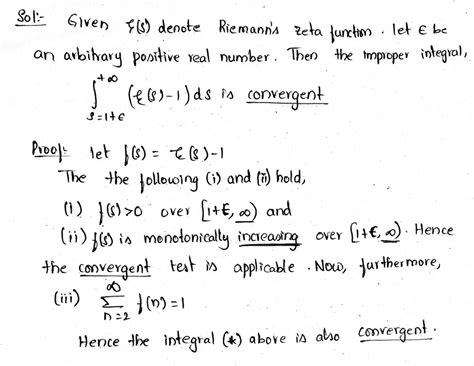 Sol:- Given ξ(s) denote Riemann's zeta function. let ε be
an arbitrary positive real number. Then the improper integral,
∫_{s=1+ε}^{+∞} (ξ(s)-1) ds is convergent
Proof:- let f(s) = ξ(s)-1
The the following (i) and (ii) hold,
(i) f(s)>0 over [1+ε, ∞) and
(ii) f(s) is monotonically increasing over [1+ε, ∞). Hence
the convergent test is applicable. Now, furthermore,
(iii) ∑_{n=2}^{∞} f(n)=1
Hence the integral (*) above is also convergent.